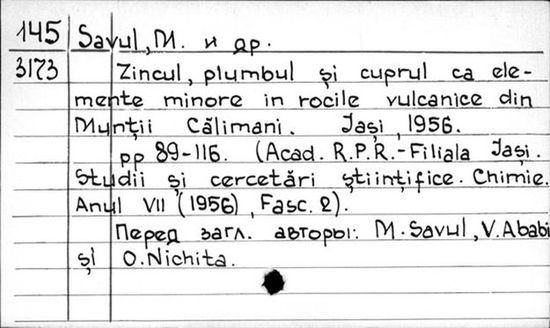 145 Savul, M. и др.
3173 Zincul, plumbul și cuprul ca ele-
mente minore in rocile vulcanice din
Munții Călimani. Iași, 1956.
pp 89-116. (Acad. R.P.R.-Filiala Iași.
Studii și cercetări științifice. Chimie.
Anul VII (1956), Fasc. 2).
Перед загл. авторы: M. Savul, V. Ababi
și O. Nichita.